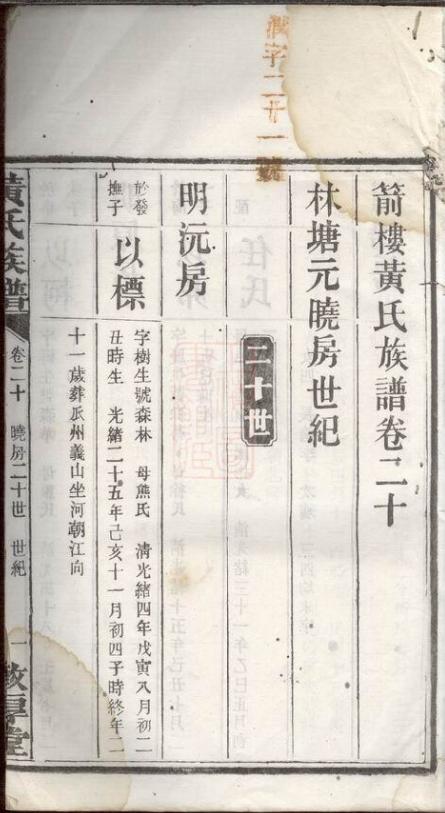 字二十一號
箭樓黃氏族譜卷二十
林塘元曉房世紀
二十世
明沅房
於發
撫子
以標
字樹生號森林　母熊氏　清光緒四年戊寅八月初二
丑時生　光緒二十五年己亥十一月初四子時終年二
十一歲葬瓜州義山坐河朝江向
黃氏族譜
卷二十　曉房二十世　世紀
一
敦厚堂